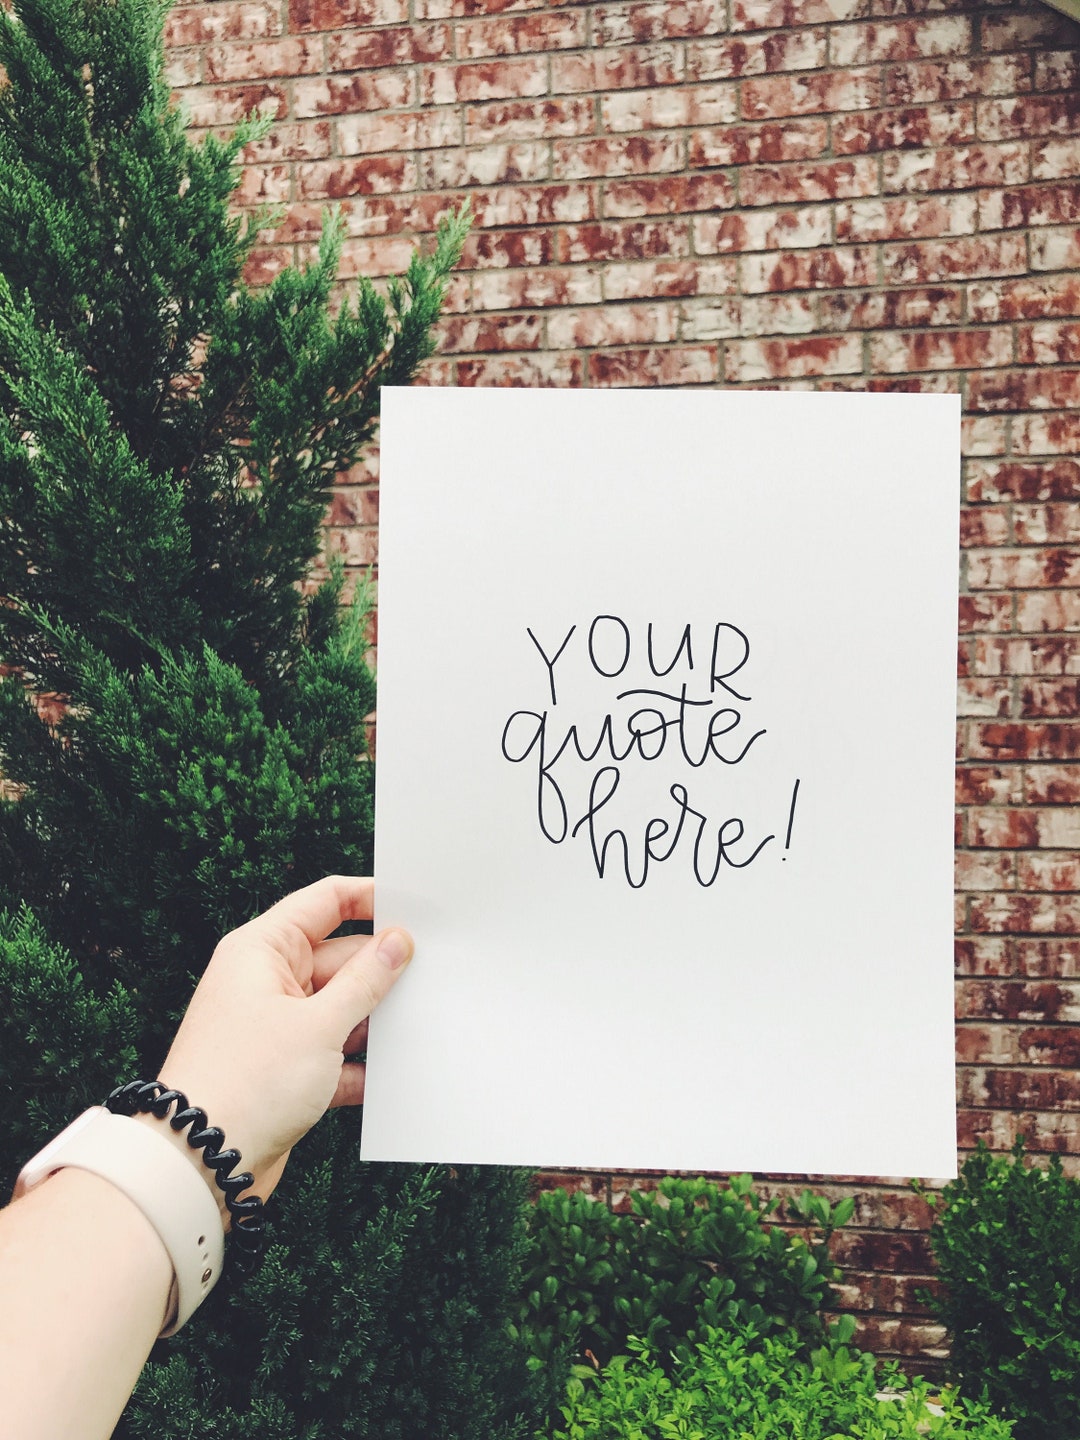 YOUR
quote
here!